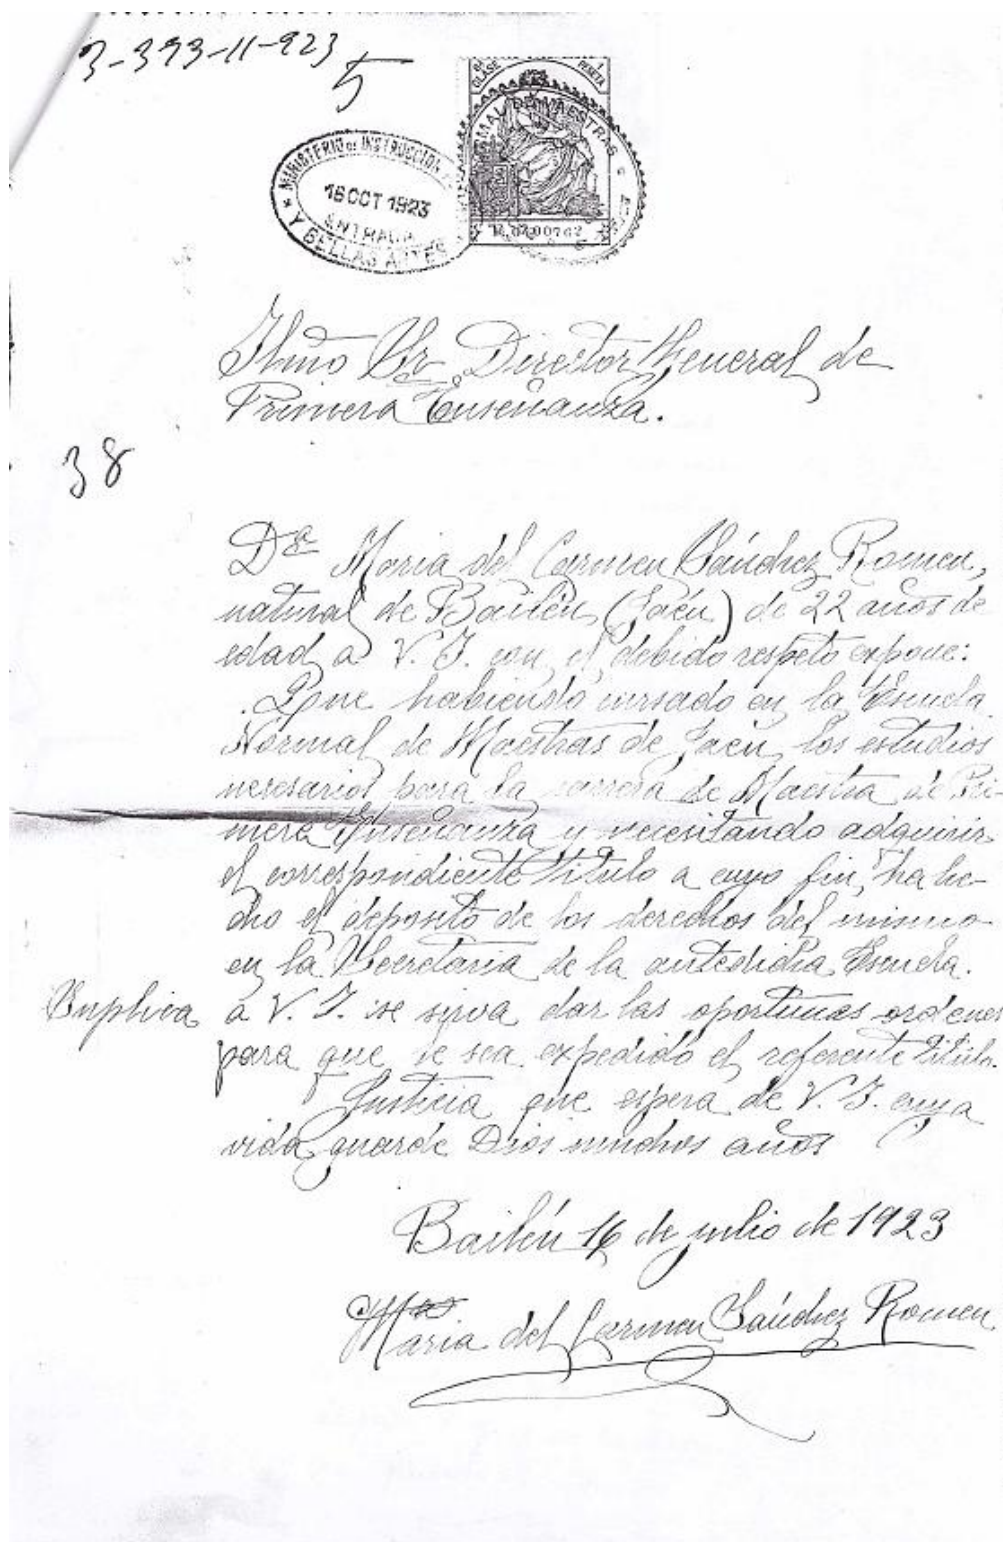 3-393-11-923
5
8ª CLASE 1 PESETA
NORMAL DE MAESTRAS
MINISTERIO DE INSTRUCCION
16 OCT 1923
ENTRADA
Y BELLAS ARTES
Ilmo Sr. Director General de
Primera Enseñanza.
38
Dª Maria del Carmen Sánchez Romen,
natural de Bailén (Jaén) de 22 años de
edad, a V. I. con el debido respeto expone:
Que habiendo cursado en la Escuela
Normal de Maestras de Jaen, los estudios
necesarios para la carrera de Maestra de Pri-
mera Enseñanza y necesitando adquirir
el correspondiente titulo a cuyo fin, ha he-
cho el deposito de los derechos del mismo
en la Secretaria de la antedicha Escuela.
Suplica a V. I. se sirva dar las oportunas ordenes
para que le sea expedido el referente titulo.
Justicia que espera de V. I. cuya
vida guarde Dios muchos años
Bailén 16 de julio de 1923
Maria del Carmen Sánchez Romen